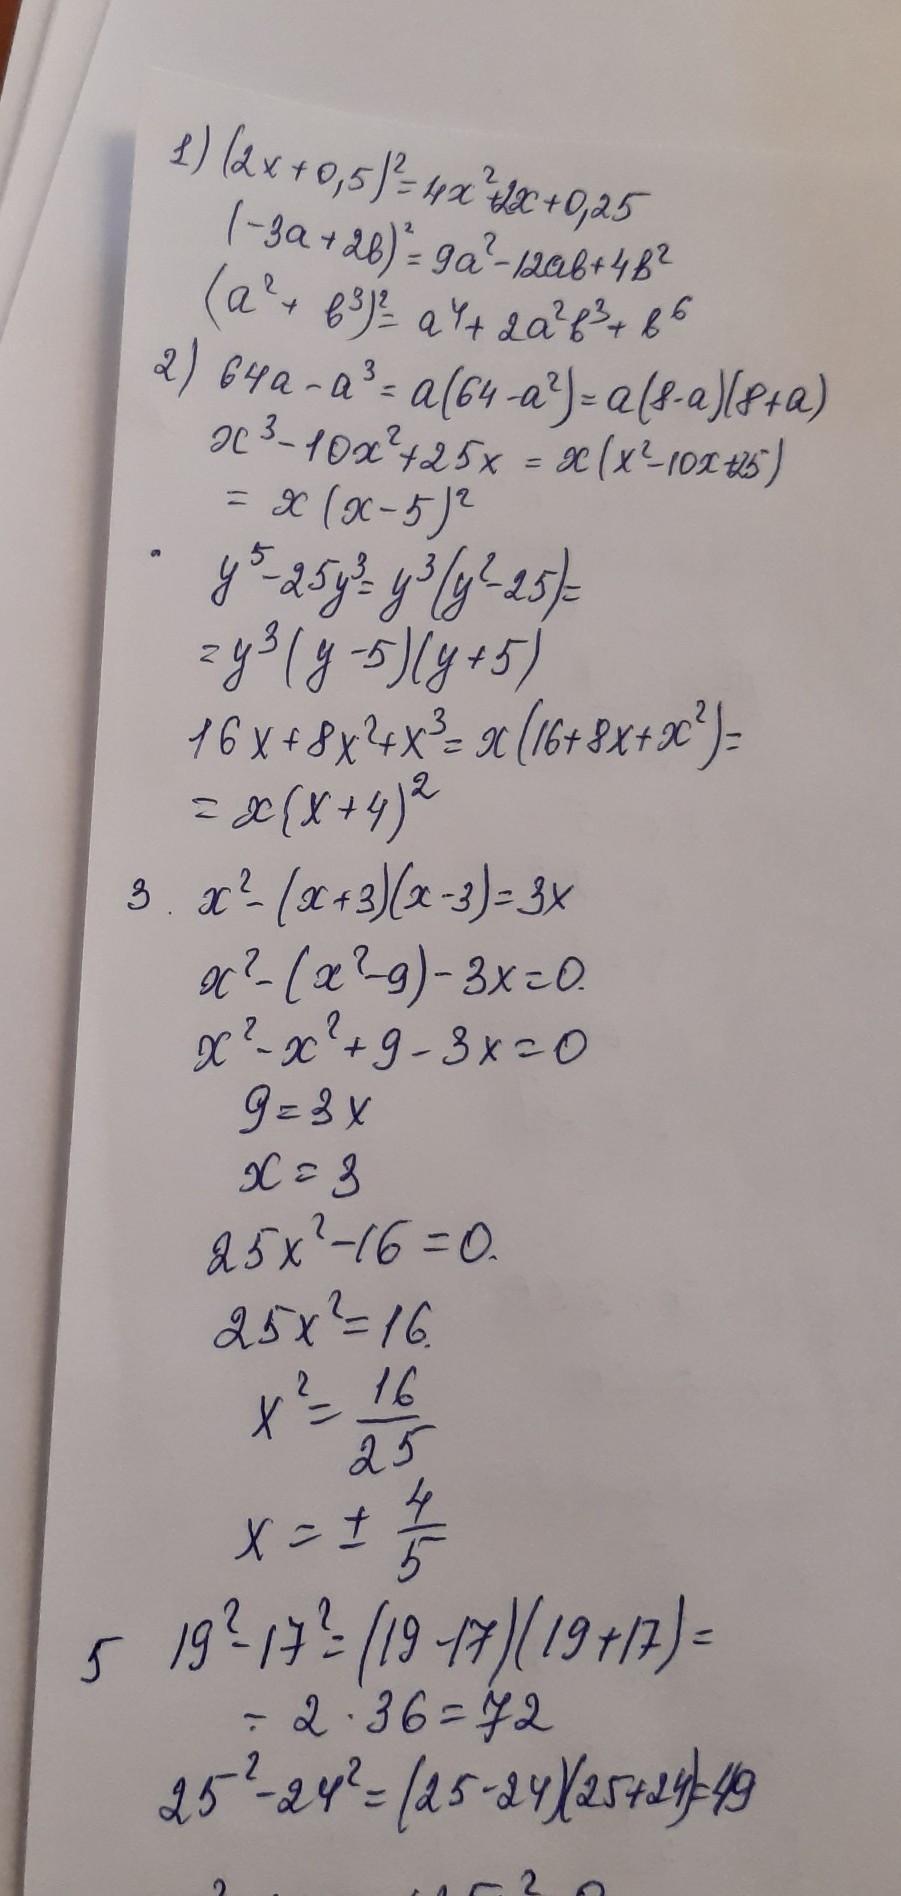 1) (2x+0,5)²=4x²+2x+0,25
(-3a+2b)²=9a²-12ab+4b²
(a²+b³)²=a⁴+2a²b³+b⁶
2) 64a-a³=a(64-a²)=a(8-a)(8+a)
x³-10x²+25x=x(x²-10x+25)
=x(x-5)²
y⁵-25y³=y³(y²-25)=
=y³(y-5)(y+5)
16x+8x²+x³=x(16+8x+x²)=
=x(x+4)²
3. x²-(x+3)(x-3)=3x
x²-(x²-9)-3x=0.
x²-x²+9-3x=0
9=3x
x=3
25x²-16=0.
25x²=16.
x²=16/25
x=±4/5
5 19²-17²=(19-17)(19+17)=
=2·36=72
25²-24²=(25-24)(25+24)=49